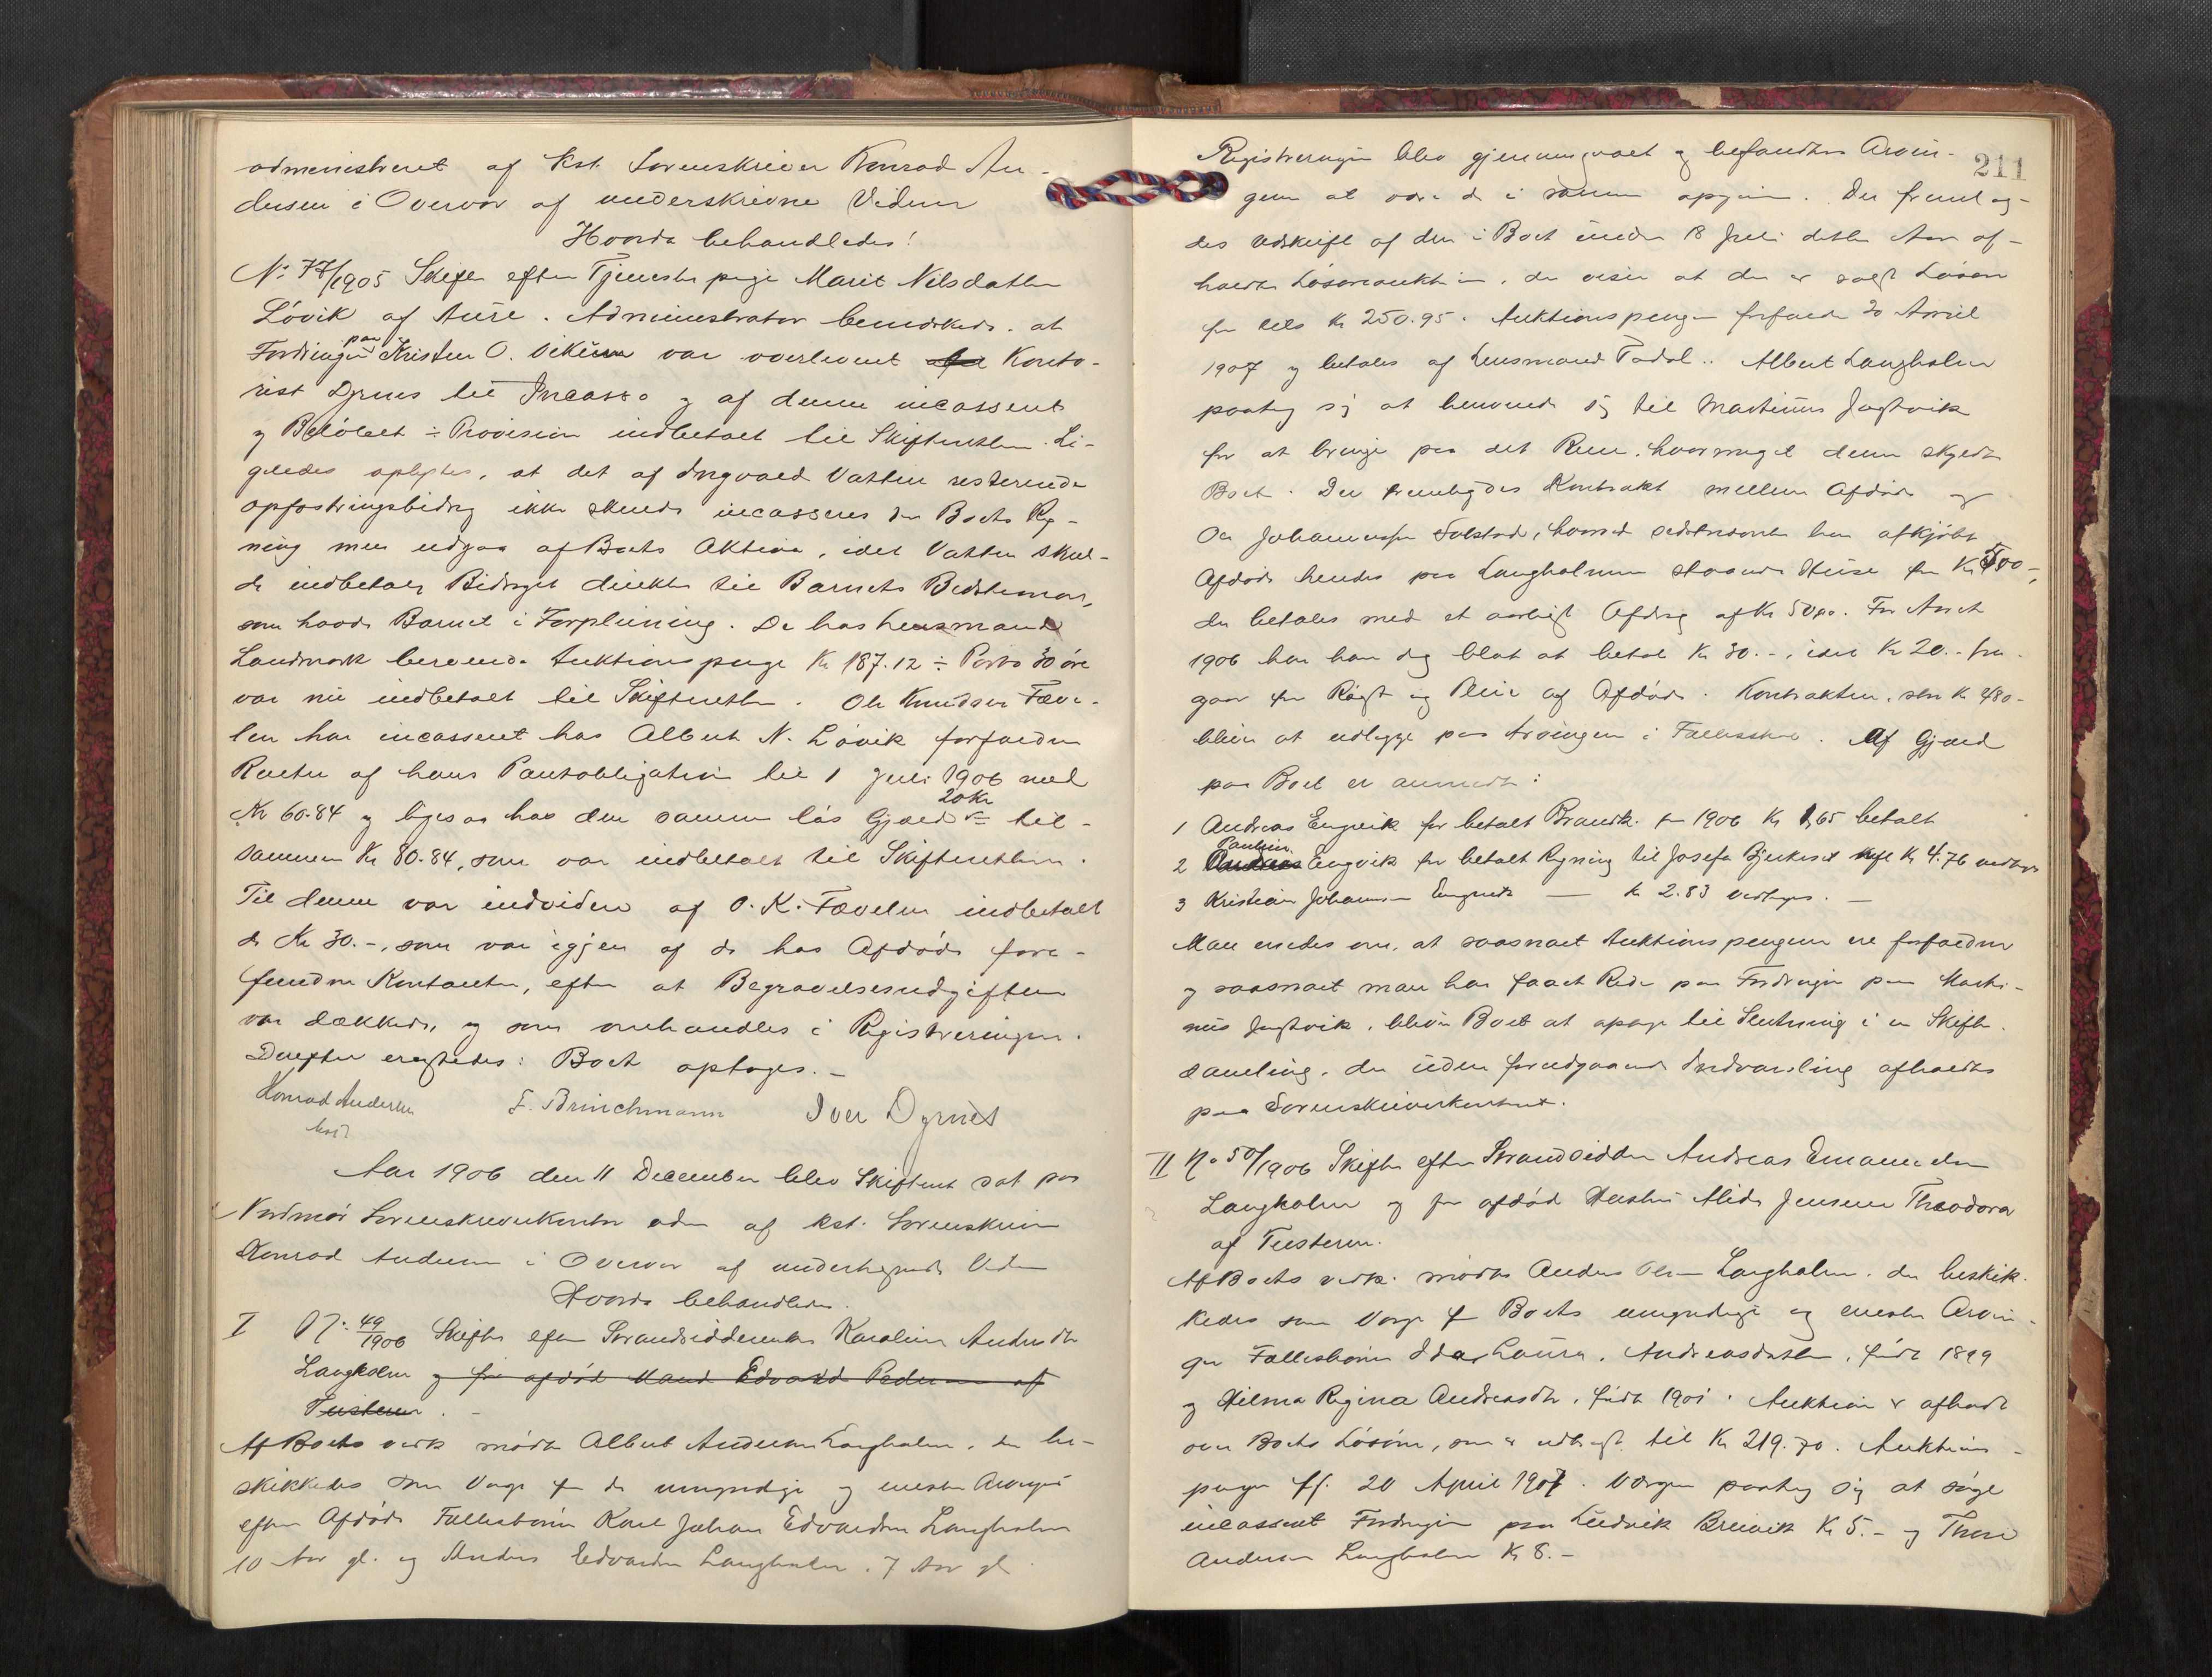 administreret af kst. Sorenskriver Konrad An-
dersen i Overvær af underskrevne Vidner
Hvorda behandledes:
No 77/1905 Skifte efter Tjenestepige Marit Nilsdatter
Løvik af Aure. Administrator bemærkede, at
Fordringen paa Kristen O. var overleveret Konto-
rist Dyrnes til Incasso og af denne incasseret
og Beløbet ÷ Provision indbetalt til Skifteretten. Li-
geledes oplystes, at det af Ingvald Vatten resterende
opfostringsbidrag ikke skulde incasseres for Boets Reg-
ning men udgaa af Boets Aktiva, idet Vatten skul-
de indbetale Bidraget direkte til Barnets Bedstemor,
som havde Barnet i Forpleining. De hos Lensmand
Landmark beroende Auktionspenge Kr 187.12 ÷ Porto 30 øre
var nu indbetalt til Skifteretten. Ole Knudsen Fæve-
len har incasseret hos Albert N. Løvik forfaldne
Renter af hans Pantobligation til 1 Juli 1906 med
Kr 60.84 og ligesaa hos den samme løs Gjæld 20 Kr = til-
sammen Kr 80.84, som var indbetalt til Skifteretten.
Til denne var endvidere af O. K. Fævelen indbetalt
de Kr 30.-, som var igjen af de hos Afdøde fore-
fundne Kontanter, efter at Begravelsesudgifterne
var dækkede, og som omhandles i Registreringen.
Derefter eragtedes: Boet optages.-
Konrad Andersen L. Brinchmann Iver Dyrnes
kst
Aar 1906 den 11 December blev Skifteret sat paa
Nordmør Sorenskriverkontor adm af kst. Sorenskriver
Konrad Andersen i Overvær af undertegnede Vidner
Hvorda behandledes.
I No 49/1906 Skifte efter Strandsidderenke Karoline Andersdtr
Langholm og før afdød Mand Edvard Pedersen af
Tusteren.-
Af Boets vedk. mødte Albert Andersen Langholm, der be-
skikkedes som Verge for de umyndige og eneste Arvinger
efter Afdøde Fællesbørn Karl Johan Edvardsen Langholm
10 Aar gl. og Anders Edvardsen Langholm, 7 Aar gl
211
Registreringen blev gjennemgaaet og befandtes Arvin-
gerne at være de i samme opgivne. Der fremlag-
des Udskrift af den i Boet under 18 Juli dette Aar af-
holdte Løsøreauktion, der viser at der er solgt Løsøre
for tils Kr 250.95. Auktionspengene forfalder 20 April
1907 og betales af Lensmand Todal.. Albert Langholm
paatog sig at henvende sig til Martinus Jugtvik
for at bringe paa det Rene, hvormeget denne skyldte
Boet. Der fremlagdes Kontrakt mellem Afdøde og
Ole Johannessen Solstad, hvorved sidstnævnte har afkjøbt
Afdøde hendes paa Langholmen staaende Huse for Kr 500-,
der betales med et aarligt Afdrag af Kr 50,00. For Aaret
1906 har han dog blot at betale Kr 30.-, idet Kr 20.- fra-
gaar for Røgt og Pleie af Afdøde. Kontrakten, stor Kr 480-
bliver at udlægge paa Arvingerne i Fælleskab. Af Gjæld
paa Boet er anmeldt:
1 Andreas Engvik for betalt Brandk. for 1906 Kr 1,65 betalt
2 Pauline Engvik for betalt Regning til Josefa Bjerkeset Kr 4.76 vedtages
3 Kristian Johannesen Engvik — Kr 2.83 vedtages. —
Man enedes om, at saasnart Auktionspengene ere forfaldne
og saasnart man har faaet Rede paa Fordringen paa Marti-
nus Jugtvik, bliver Boet at optage til Slutning i en Skifte-
samling, der uden forudgaaende Indvarsling afholdes
paa Sorenskriverkontoret.
II No 50/1906 Skifte efter Strandsidder Andreas Emanuelsen
Langholm og før afdød Hustru Alida Jensine Theodora
af Tusteren.
Af Boets vedk. mødte Anders Olsen Langholm, der beskik-
kedes som Verge for Boets umyndige og eneste Arvin-
ger Fællesbørn Ida Laura Andreasdatter, født 1899
og Hilma Regina Andreasdtr, født 1901. Auktion er afholdt
over Boets Løsøre, som er udbragt til Kr 219.70. Auktions-
pengene ff. 20 April 1907. Vergen paatog sig at søge
incasseret Fordringen paa Ludvik Brevik Kr 5.- og Thore
Andersen Langholm Kr 8.-